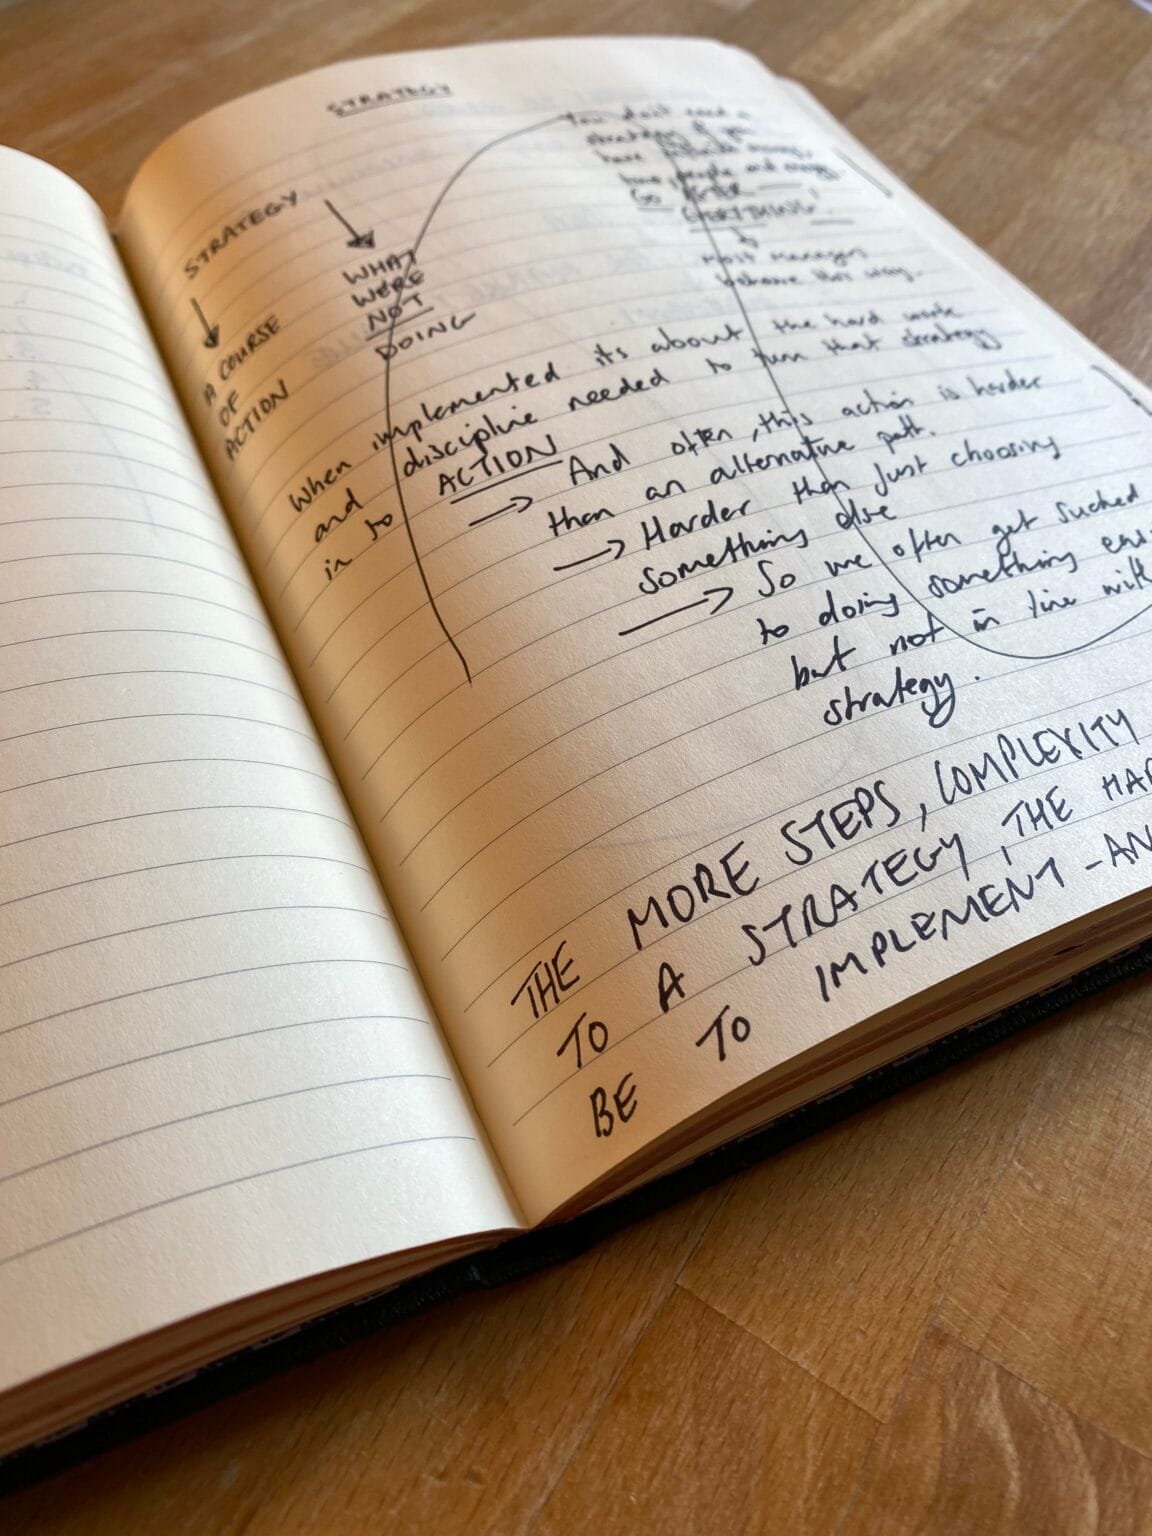 STRATEGY
You don't need a
strategy if you
have infinite money,
time, people and energy
GO AFTER
EVERYTHING!
Most managers
behave this way.
STRATEGY
WHAT
WERE
NOT
DOING
A COURSE
OF
ACTION
When implemented its about the hard work
and discipline needed to turn that strategy
in to ACTION
And often, this action is harder
than an alternative path.
Harder than just choosing
something else
So we often get sucked
to doing something
but not in line with
strategy.
THE MORE STEPS, COMPLEXITY
TO A STRATEGY, THE
BE TO IMPLEMENT -